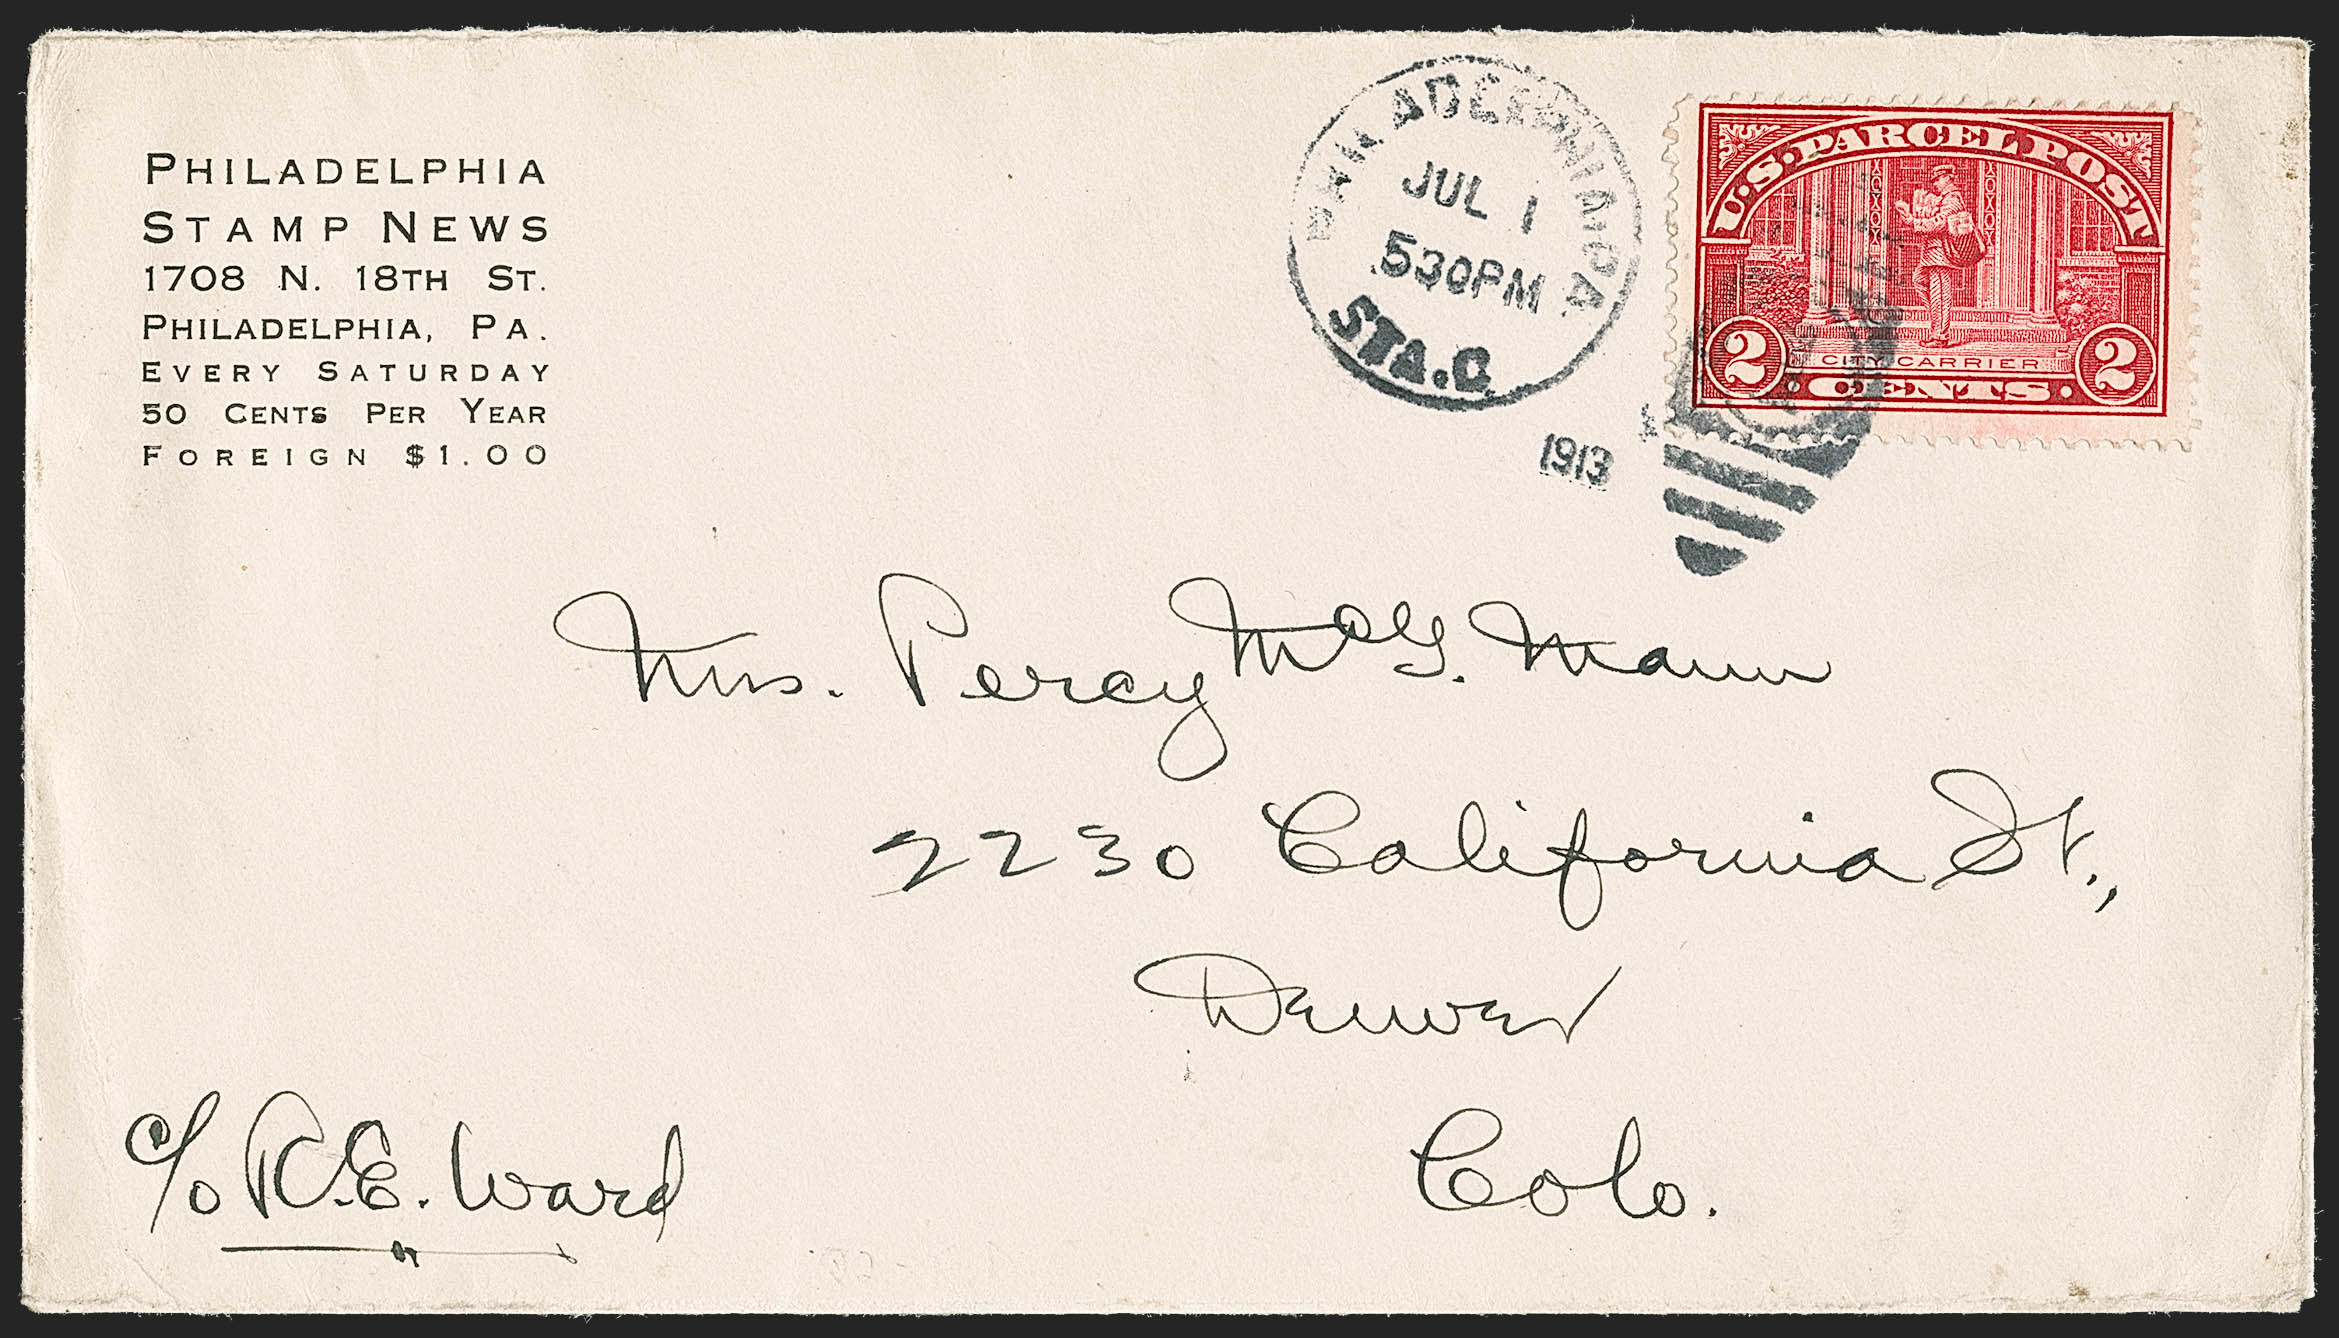 PHILADELPHIA
STAMP NEWS
1708 N. 18TH ST.
PHILADELPHIA, PA.
EVERY SATURDAY
50 CENTS PER YEAR
FOREIGN $1.00
PHILADELPHIA, PA.
JUL 1
530PM
STA. C.
1913
U.S. PARCEL POST
CITY CARRIER
2 CENTS 2
Mrs. Percy McG. Mann
2230 California St.,
Denver
Colo.
c/o R.E. Ward